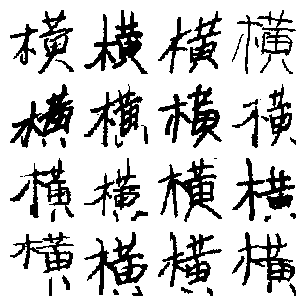 横横横横
横横横横
横横横横
横横横横